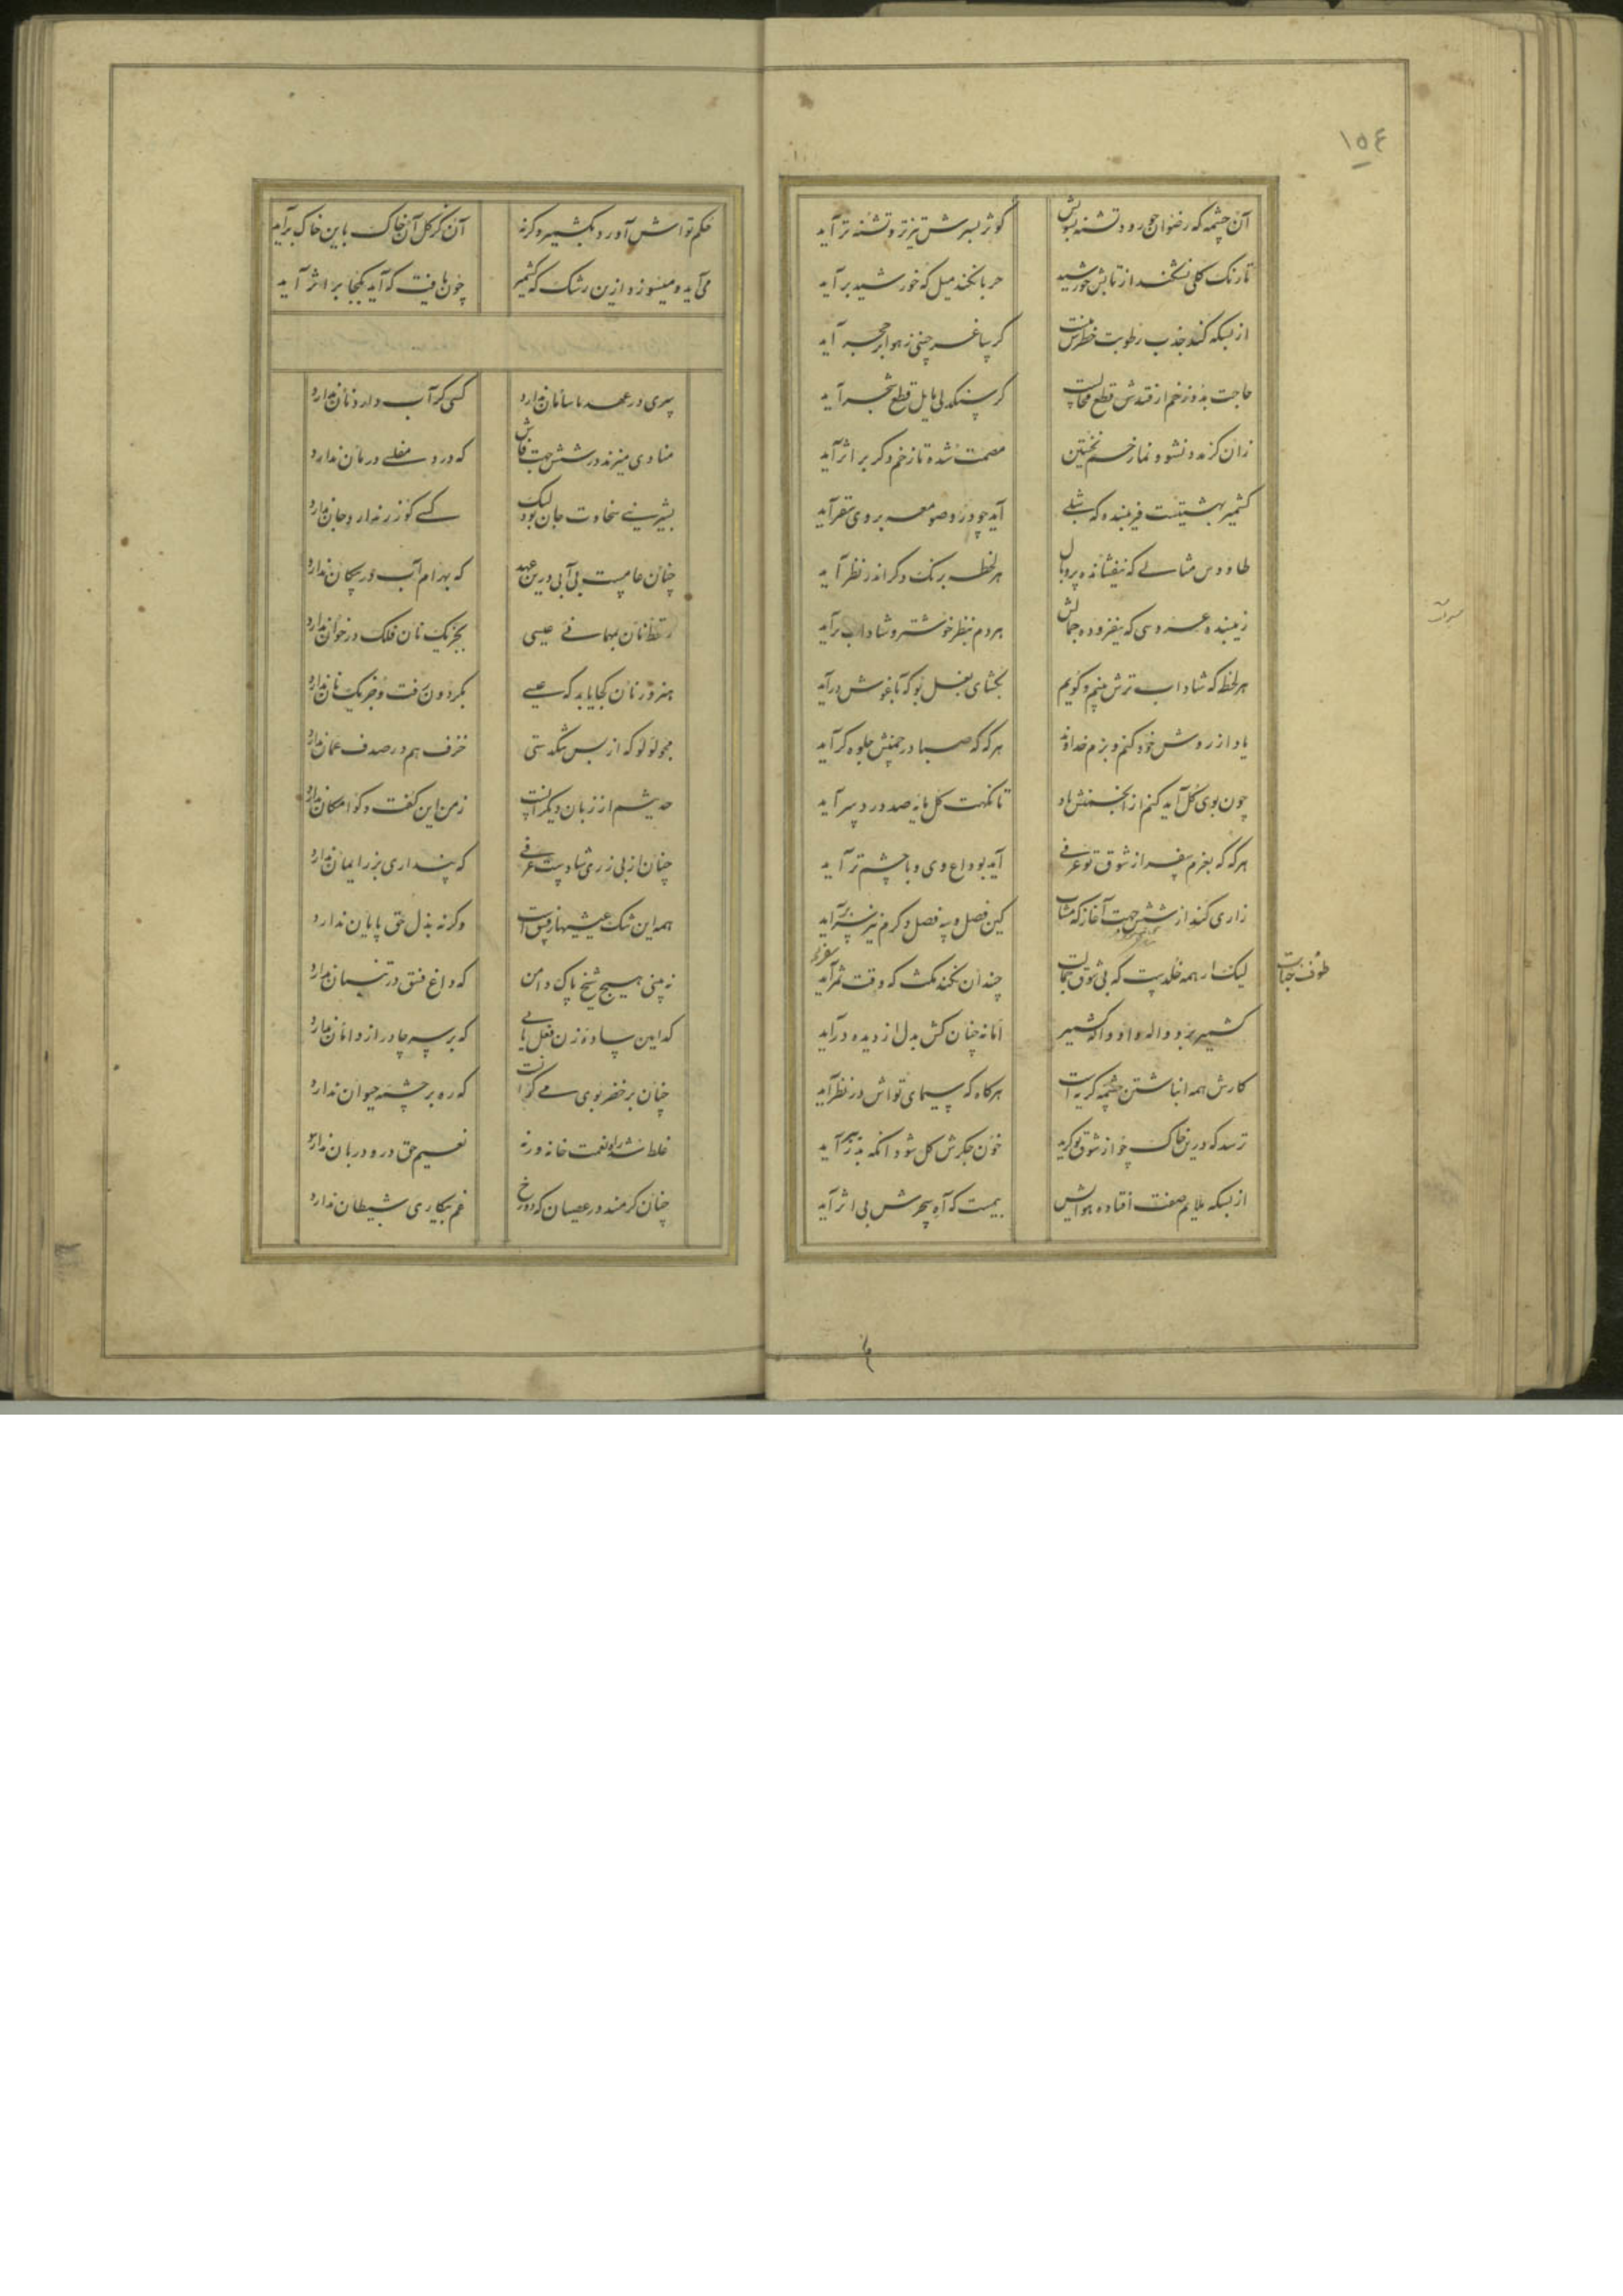 ۱۵۴
آن چشمه که رضوان چو رود تشنه بسویش
کوثر بسرش تیزتر و تشنه تر آید
تا رنک کلی نشکند از تابش خورشید
حربا نکند میل که خورشید بر آید
از بسکه کند جذب رطوبت
کر ساغر چینی ز هوا بر حجر آید
حاجت بدو زخم از قطع محالست
کر سنکدلی مایل قطع شجر آید
زان کز مدد نشو و نما زخم نخستین
مصمت شده تا زخم دکر بر اثر آید
کشمیر بهشتیست فریبنده که شبلی
آید چو در و صومعه بر وی سقر آید
طاووس مثالی که بیفشانده پر و بال
هر لحظه برنک دکر اندر نظر آید
زیبنده عروسی که بیفزوده جمالش
هر دم بنظر خوشتر و شاداب تر آید
هر لحظه که شاداب ترش بینم و کویم
بکشای بغل بو که باغوش در آید
یاد از روش خود کنم و بزم خداوند
هر که که صبا در چمنش جلوه کر آید
چون بوی کل آید کنم از انجمنش یاد
تا نکهت کل مایه صد درد سر آید
هر که که بعزم سفر از شوق تو عرفی
آید بوداع وی و با چشم تر آید
زاری کند از شش جهت آغاز که مشتاب
کین فصل و به فصل و کرم نیز بسر آید
لیک ار همه خلدست که بی شوق جمالت
چندان نکند مکث که وقت ثمر آید
طوف جنابت
سفر آید
کشمیر بود واله و او واله کشمیر
اما نه چنان کش بدل از دیده در آید
کارش همه انباشتن چشمه کریه است
هر کاه که سیمای تواش در نظر آید
ترسد که درین خاک چو از شوق تو کرید
خون جکرش کل شود انکه بدر آید
از بسکه ملایم صفت افتاده هوایش
بیمست که آه سحرش بی اثر آید
حکم تواش آورد بکشمیر و کرنه
آن کز کل آن خاک باین خاک بر آید
می آید و میسوزد ازین رشک که کشمیر
چون یافت که آید بکجا بر اثر آید
سری در عهد ما سامان ندارد
کسی کر آب دارد نان ندارد
منادی میزند در شش جهت فاش
که درد مفلسی درمان ندارد
بشیرینی سخاوت جان بود لیک
کسی کو زر ندارد جان ندارد
چنان عامست بی آبی درین عهد
که بهرام آب در پیکان ندارد
ز قحط نان بمهمانی عیسی
بجز یک نان فلک در خوان ندارد
هنرور نان کجا یابد که عیسی
بکردون رفت و جز یک نان ندارد
مجو لولو که از بس تنکدستی
خزف هم در صدف عمان ندارد
حدیثم از زبان دیکرانست
ز من این کفت و کو امکان ندارد
چنان از بی زری شادست عرفی
که پنداری بزر ایمان ندارد
همه این تنک عیشیها ز فسق است
وکرنه بذل حق پایان ندارد
نه بینی هیچ شیخ پاک دامن
که داغ فسق در تنبان ندارد
کدامین ساده زن فعل یابی
که بر سر چادر از دامان ندارد
چنان بر خضر بوی می کوارا ست
که ره بر چشمه حیوان ندارد
غلط شد راه نعمت خانه ورنه
نعیم حق در و دربان ندارد
چنان کرمند در عصیان که دوزخ
غم بیکاری شیطان ندارد